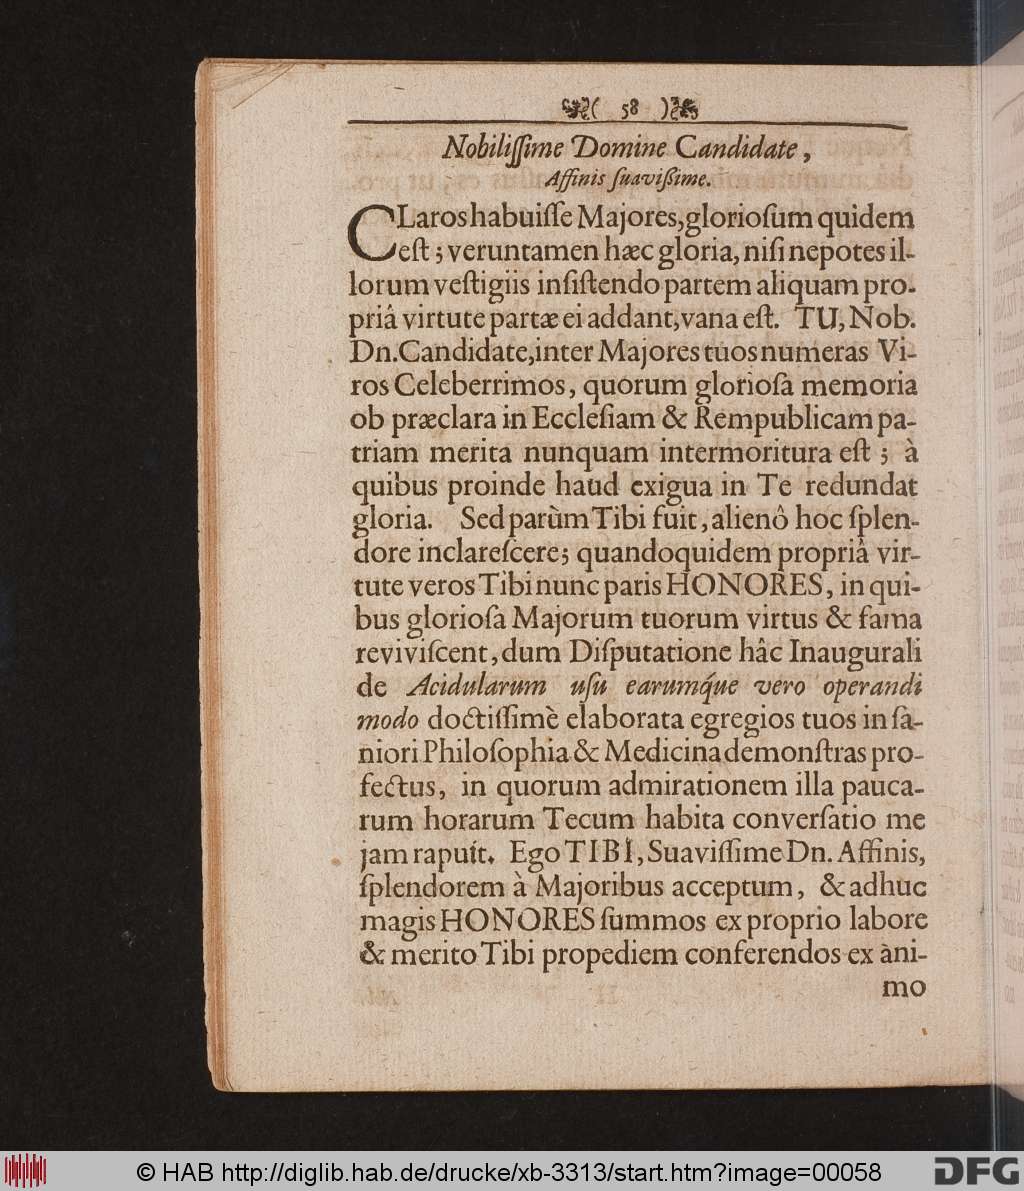 ( 58 )
Nobiliſſime Domine Candidate,
Affinis ſuavißime.
CLaros habuiſſe Majores, glorioſum quidem
eſt; veruntamen hæc gloria, niſi nepotes il-
lorum veſtigiis inſiſtendo partem aliquam pro-
priâ virtute partæ ei addant, vana eſt. TU, Nob.
Dn. Candidate, inter Majores tuos numeras Vi-
ros Celeberrimos, quorum glorioſa memoria
ob præclara in Eccleſiam & Rempublicam pa-
triam merita nunquam intermoritura eſt; à
quibus proinde haud exigua in Te redundat
gloria. Sed parùm Tibi fuit, alienô hoc ſplen-
dore inclareſcere; quandoquidem propriâ vir-
tute veros Tibi nunc paris HONORES, in qui-
bus glorioſa Majorum tuorum virtus & fama
reviviſcent, dum Diſputatione hâc Inaugurali
de Acidularum uſu earumq́ue vero operandi
modo doctiſſimè elaborata egregios tuos in ſa-
niori Philoſophia & Medicina demonſtras pro-
fectus, in quorum admirationem illa pauca-
rum horarum Tecum habita converſatio me
jam rapuit. Ego TIBI, Suaviſſime Dn. Affinis,
ſplendorem à Majoribus acceptum, & adhuc
magis HONORES ſummos ex proprio labore
& merito Tibi propediem conferendos ex àni-
mo
© HAB http://diglib.hab.de/drucke/xb-3313/start.htm?image=00058
DFG